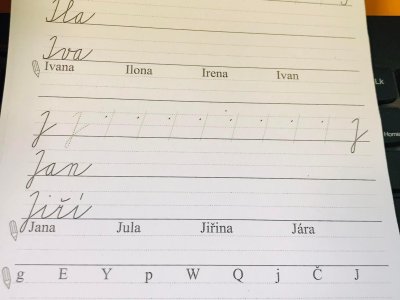 Ila
Iva
Ivana Ilona Irena Ivan
J J J
Jan
Jiří
Jana Jula Jiřina Jára
g E Y p W Q j Č J
Lk
Home